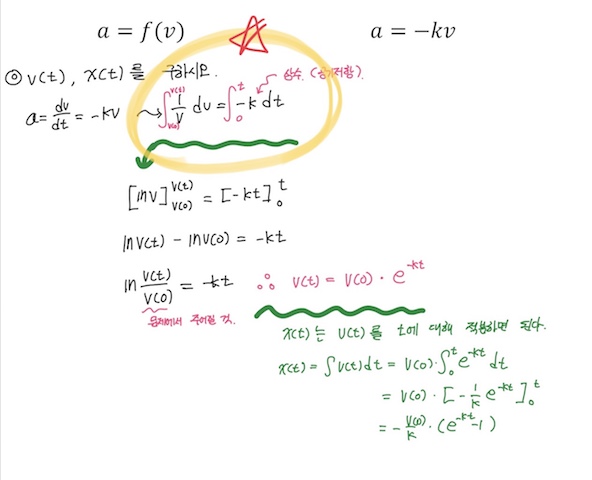 a = f(v)
a = −kv
◎ v(t), x(t) 를 구하시오.
상수. (공기저항).
a = dv/dt = −kv ⤳ ∫_{v(0)}^{v(t)} 1/v dv = ∫_0^t −k dt
[lnv]_{v(0)}^{v(t)} = [−kt]_0^t
lnv(t) − lnv(0) = −kt
ln v(t)/v(0) = −kt ∴ v(t) = v(0) · e^{−kt}
문제에서 주어질 것.
x(t)는 v(t)를 t에 대해 적분하면 된다.
x(t) = ∫v(t)dt = v(0)·∫_0^t e^{−kt} dt
= v(0) · [−1/k e^{−kt}]_0^t
= −v(0)/k · (e^{−kt}−1)